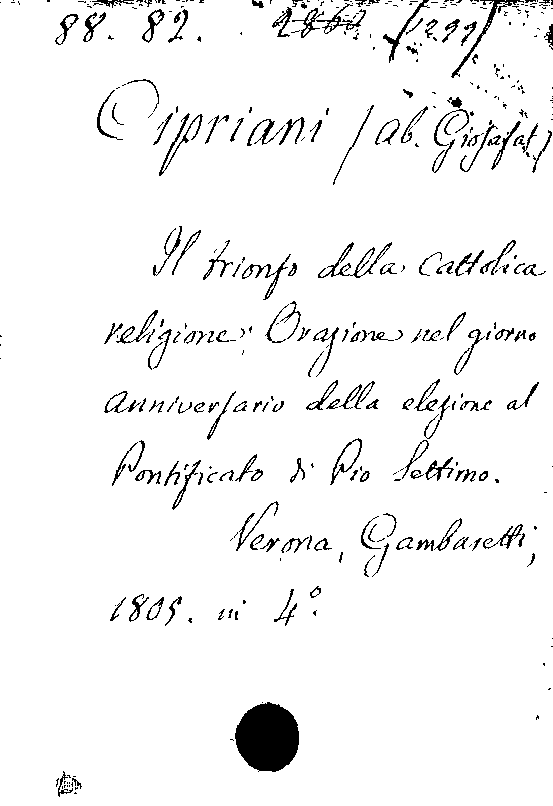 88. 82. 2860 (299)
Cipriani (ab. Giosafat)
Il trionfo della Cattolica
religione: Orazione nel giorno
anniversario della elezione al
Pontificato di Pio Settimo.
Verona, Gambaretti,
1805. in 4º.